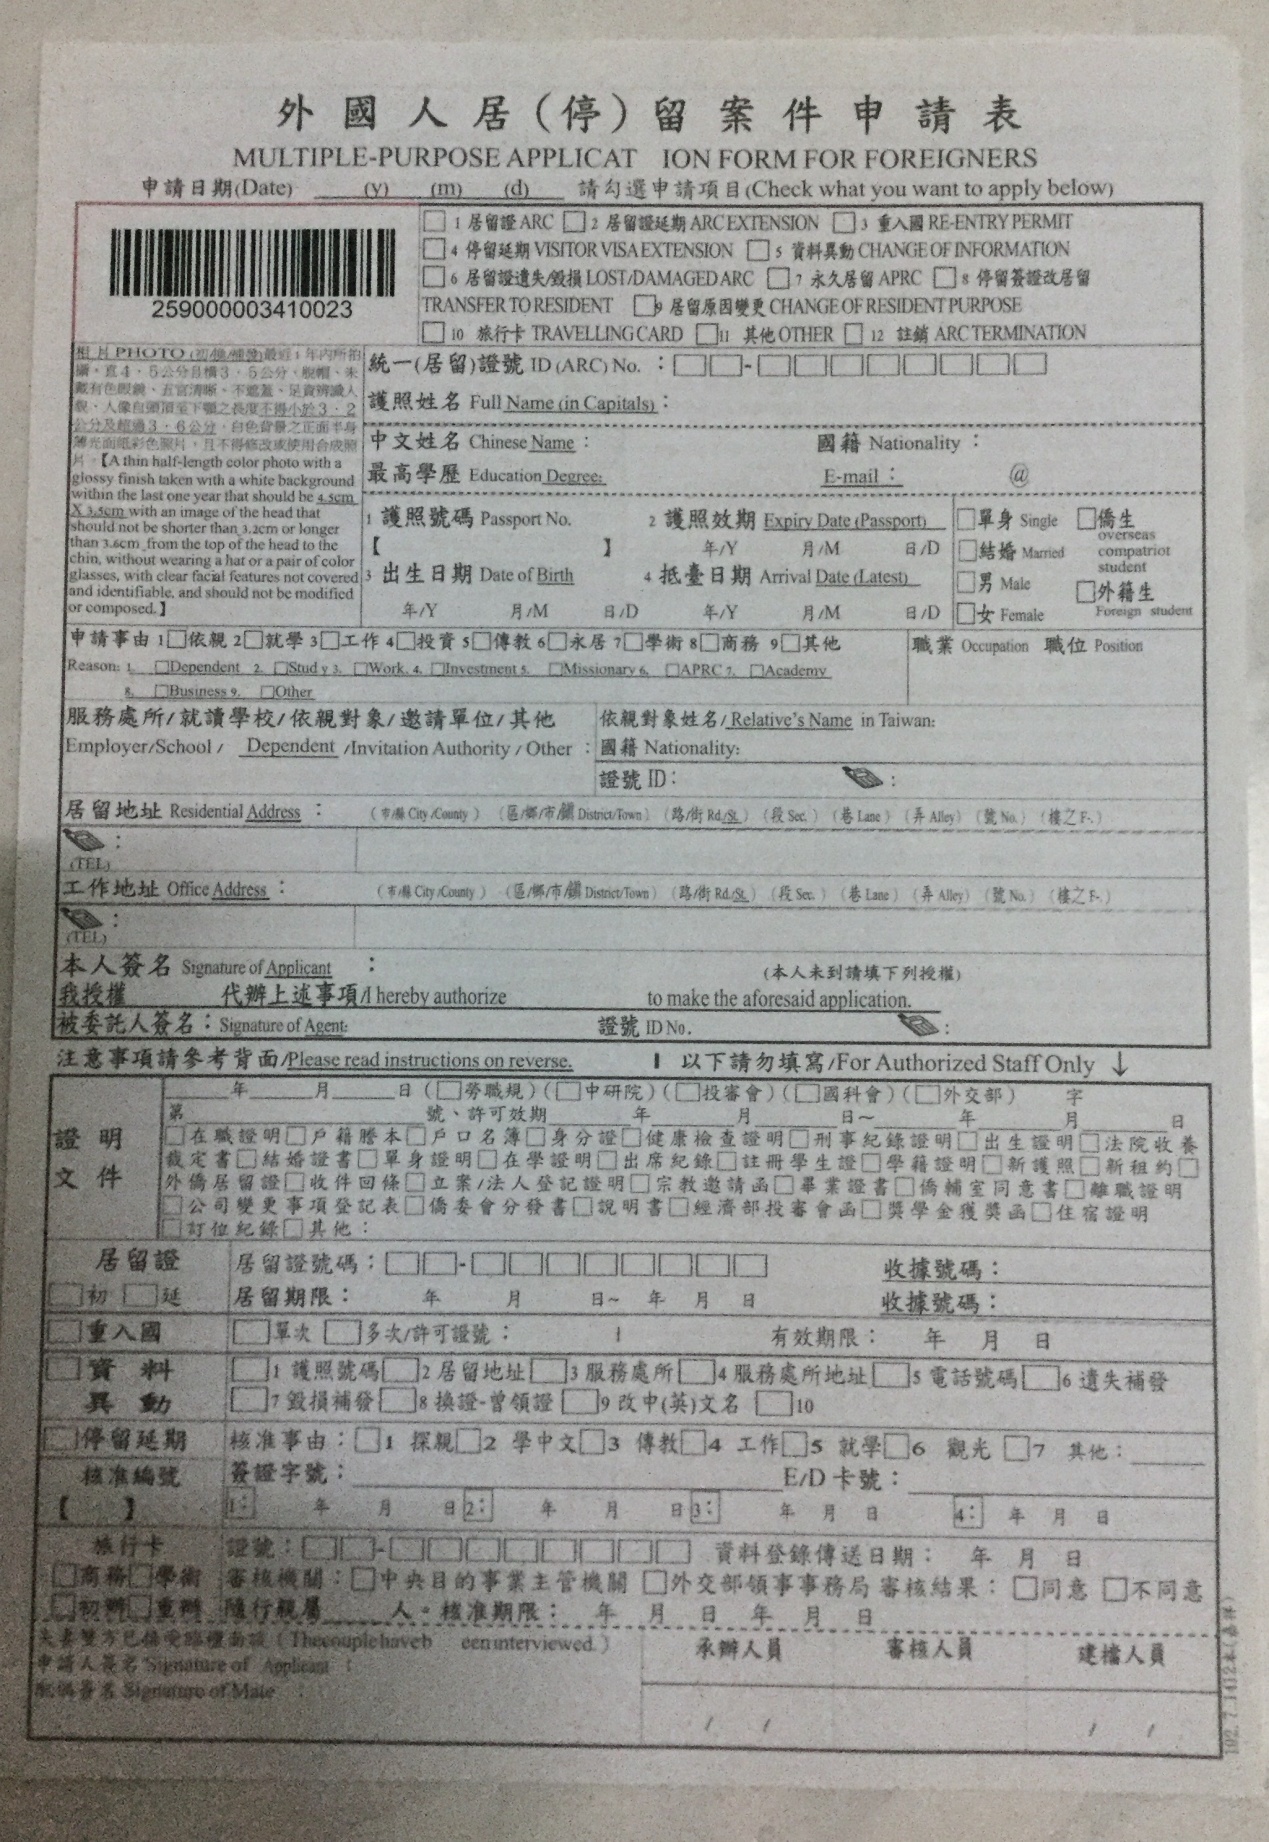 外國人居(停)留案件申請表
MULTIPLE-PURPOSE APPLICAT ION FORM FOR FOREIGNERS
申請日期(Date) ____(y) ____(m) ____(d) 請勾選申請項目(Check what you want to apply below)
259000003410023
□1 居留證 ARC □2 居留證延期 ARC EXTENSION □3 重入國 RE-ENTRY PERMIT
□4 停留延期 VISITOR VISA EXTENSION □5 資料異動 CHANGE OF INFORMATION
□6 居留證遺失/毀損 LOST/DAMAGED ARC □7 永久居留 APRC □8 停留簽證改居留
TRANSFER TO RESIDENT □9 居留原因變更 CHANGE OF RESIDENT PURPOSE
□10 旅行卡 TRAVELLING CARD □11 其他 OTHER □12 註銷 ARC TERMINATION
相片 PHOTO (初/換/補發)最近1年內所拍
攝、直4.5公分且橫3.5公分、脫帽、未
戴有色眼鏡、五官清晰、不遮蓋、足資辨識人
貌、人像自頭頂至下顎之長度不得小於3.2
公分及超過3.6公分、白色背景之正面半身
薄光面紙彩色照片，且不得修改或使用合成照
片。【A thin half-length color photo with a
glossy finish taken with a white background
within the last one year that should be 4.5cm
X 3.5cm with an image of the head that
should not be shorter than 3.2cm or longer
than 3.6cm from the top of the head to the
chin, without wearing a hat or a pair of color
glasses, with clear facial features not covered
and identifiable, and should not be modified
or composed.】
統一(居留)證號 ID (ARC) No. ：□□-□□□□□□□□
護照姓名 Full Name (in Capitals)：
中文姓名 Chinese Name： 國籍 Nationality：
最高學歷 Education Degree: E-mail： @
1 護照號碼 Passport No. 2 護照效期 Expiry Date (Passport)
【 】 年/Y 月/M 日/D
3 出生日期 Date of Birth 4 抵臺日期 Arrival Date (Latest)
年/Y 月/M 日/D 年/Y 月/M 日/D
□單身 Single □僑生
overseas
□結婚 Married compatriot
student
□男 Male □外籍生
□女 Female Foreign student
申請事由 1□依親 2□就學 3□工作 4□投資 5□傳教 6□永居 7□學術 8□商務 9□其他
Reason: 1. □Dependent 2. □Stud y 3. □Work. 4. □Investment 5. □Missionary 6. □APRC 7. □Academy
8. □Business 9. □Other
職業 Occupation 職位 Position
服務處所/就讀學校/依親對象/邀請單位/其他
Employer/School / Dependent /Invitation Authority / Other：
依親對象姓名/Relative's Name in Taiwan:
國籍 Nationality:
證號 ID： ：
居留地址 Residential Address ： (市/縣 City /County) (區/鄉/市/鎮 District/Town) (路/街 Rd./St.) (段 Sec.) (巷 Lane) (弄 Alley) (號 No.) (樓之 F-.)
：
(TEL)
工作地址 Office Address ： (市/縣 City /County) (區/鄉/市/鎮 District/Town) (路/街 Rd./St.) (段 Sec.) (巷 Lane) (弄 Alley) (號 No.) (樓之 F-.)
：
(TEL)
本人簽名 Signature of Applicant ： (本人未到請填下列授權)
我授權 代辦上述事項/I hereby authorize to make the aforesaid application.
被委託人簽名：Signature of Agent: 證號 ID No. ：
注意事項請參考背面/Please read instructions on reverse. 以下請勿填寫/For Authorized Staff Only ↓
證明
文件
____年____月____日(□勞職規)(□中研院)(□投審會)(□國科會)(□外交部) 字
第 號、許可效期 年 月 日~ 年 月 日
□在職證明□戶籍謄本□戶口名簿□身分證□健康檢查證明□刑事紀錄證明□出生證明□法院收養
裁定書□結婚證書□單身證明□在學證明□出席紀錄□註冊學生證□學籍證明□新護照□新租約□
外僑居留證□收件回條□立案/法人登記證明□宗教邀請函□畢業證書□僑輔室同意書□離職證明
□公司變更事項登記表□僑委會分發書□說明書□經濟部投審會函□獎學金獲獎函□住宿證明
□訂位紀錄□其他：
居留證 居留證號碼：□□-□□□□□□□□ 收據號碼：
□初 □延 居留期限： 年 月 日~ 年 月 日 收據號碼：
□重入國 □單次 □多次/許可證號： 有效期限： 年 月 日
□資料 □1 護照號碼□2 居留地址□3 服務處所□4 服務處所地址□5 電話號碼□6 遺失補發
異動 □7 毀損補發□8 換證-曾領證 □9 改中(英)文名 □10
□停留延期 核准事由：□1 探親□2 學中文□3 傳教□4 工作□5 就學□6 觀光 □7 其他：
核准編號 簽證字號： E/D 卡號：
【 】 1: 年 月 日 2: 年 月 日 3: 年 月 日 4: 年 月 日
旅行卡 證號：□□-□□□□□□□□ 資料登錄傳送日期： 年 月 日
□商務□學術 審核機關：□中央目的事業主管機關 □外交部領事事務局 審核結果：□同意 □不同意
□初辦□重辦 隨行親屬____人。核准期限： 年 月 日 年 月 日
夫妻雙方已接受臨櫃面談 (Thecouplehaveb eeninterviewed.)
申請人簽名 Signature of Applicant：
配偶簽名 Signature of Mate ：
承辦人員 審核人員 建檔人員
/ / / /